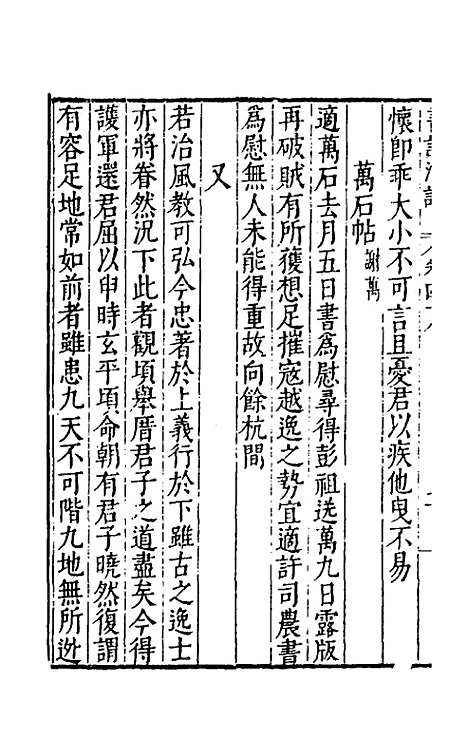 懷即乖大小不可言且憂君以疾他曳不易
萬石帖 謝萬
適萬石去月五日書為慰尋得彭祖送萬九日露版
再破賊有所獲想足摧寇越逸之勢宜適許司農書
為慰無人未能得重故向餘杭間
又
若治風教可弘今忠著於上義行於下雖古之逸士
亦將眷然況下此者觀頃舉厝君子之道盡矣今得
護軍還君屈以申時玄平頃命朝有君子曉然復謂
有容足地常如前者雖患九天不可階九地無所逃